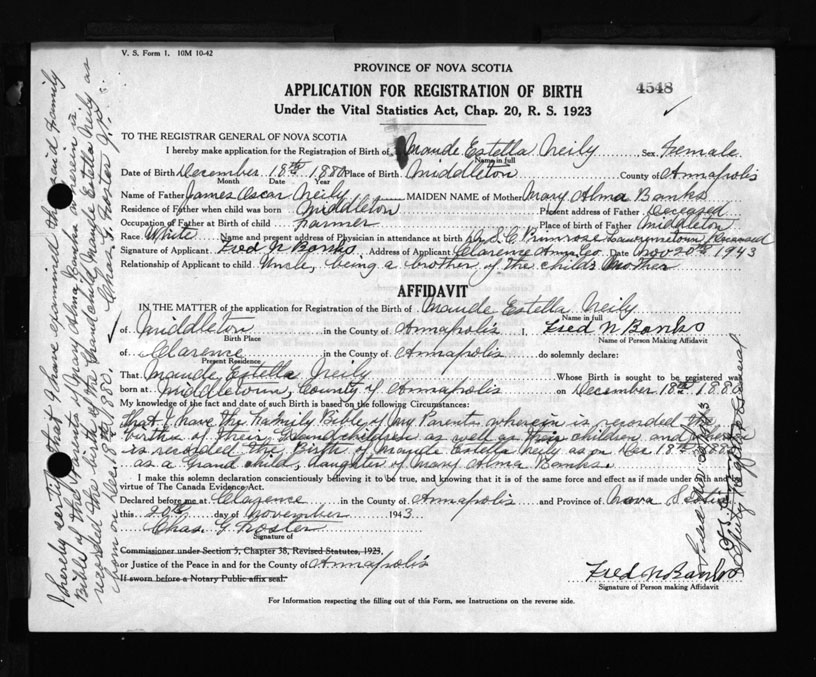 V. S. Form 1. 10M 10-42
PROVINCE OF NOVA SCOTIA
4548
APPLICATION FOR REGISTRATION OF BIRTH
Under the Vital Statistics Act, Chap. 20, R. S. 1923
TO THE REGISTRAR GENERAL OF NOVA SCOTIA
I hereby make application for the Registration of Birth of Maude Estella Neily Sex Female
Name in full
Date of Birth December 18th 1880 Place of Birth Middleton County of Annapolis
Month Date Year
Name of Father James Oscar Neily MAIDEN NAME of Mother Mary Alma Banks
Residence of Father when child was born Middleton Present address of Father Deceased
Occupation of Father at Birth of child Farmer Place of Birth of Father Middleton
Race White Name and present address of Physician in attendance at birth Dr S. C. Primrose Lawrencetown Deceased
Signature of Applicant Fred N Banks Address of Applicant Clarence Anna. Co. Date Nov 20th 1943
Relationship of Applicant to child Uncle, being a brother of the child's Mother
AFFIDAVIT
IN THE MATTER of the application for Registration of the Birth of Maude Estella Neily
Name in full
of Middleton in the County of Annapolis I, Fred N Banks
Birth Place Name of Person Making Affidavit
of Clarence in the County of Annapolis do solemnly declare:
Present Residence
That Maude Estella Neily Whose Birth is sought to be registered was
born at Middletown, County of Annapolis on December 18th 1880
My knowledge of the fact and date of such Birth is based on the following Circumstances:
that I have the Family Bible of my Parents wherein is recorded the
births of their Grandchildren as well as their children and
is recorded the Birth of Maude Estella Neily as on Dec 18th 1880
as a Grand child, daughter of Mary Alma Banks.
I make this solemn declaration conscientiously believing it to be true, and knowing that it is of the same force and effect as if made under oath and by
virtue of The Canada Evidence Act.
Declared before me at Clarence in the County of Annapolis and Province of Nova Scotia
this 20th day of November 1943
Chas. G Foster
Signature of
Commissioner under Section 5, Chapter 38, Revised Statutes, 1923,
or Justice of the Peace in and for the County of Annapolis
If sworn before a Notary Public affix seal.
Fred N Banks
Signature of Person making Affidavit
For Information respecting the filling out of this Form, see Instructions on the reverse side.
I hereby certify that I have examined the said Family
Bible of the Parents of Mary Alma Banks wherein is
recorded the birth of the Grandchild Maude Estella Neily as
born on Dec. 18th 1880. Chas. G. Foster J.P.
Deputy Registrar General